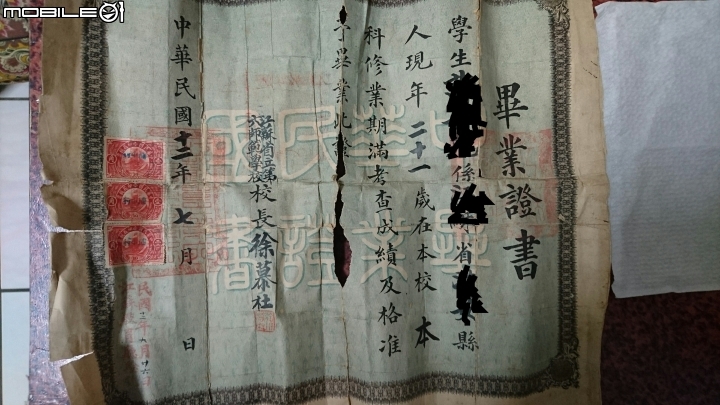 MOBILE01
畢業證書
學生 係 省 縣
人現年二十一歲在本校本
科修業期滿考查成績及格准
予畢業此證
江蘇省立第
六師範學校
校長徐慕杜
中華民國十二年七月 日
中華民國
畢業證書